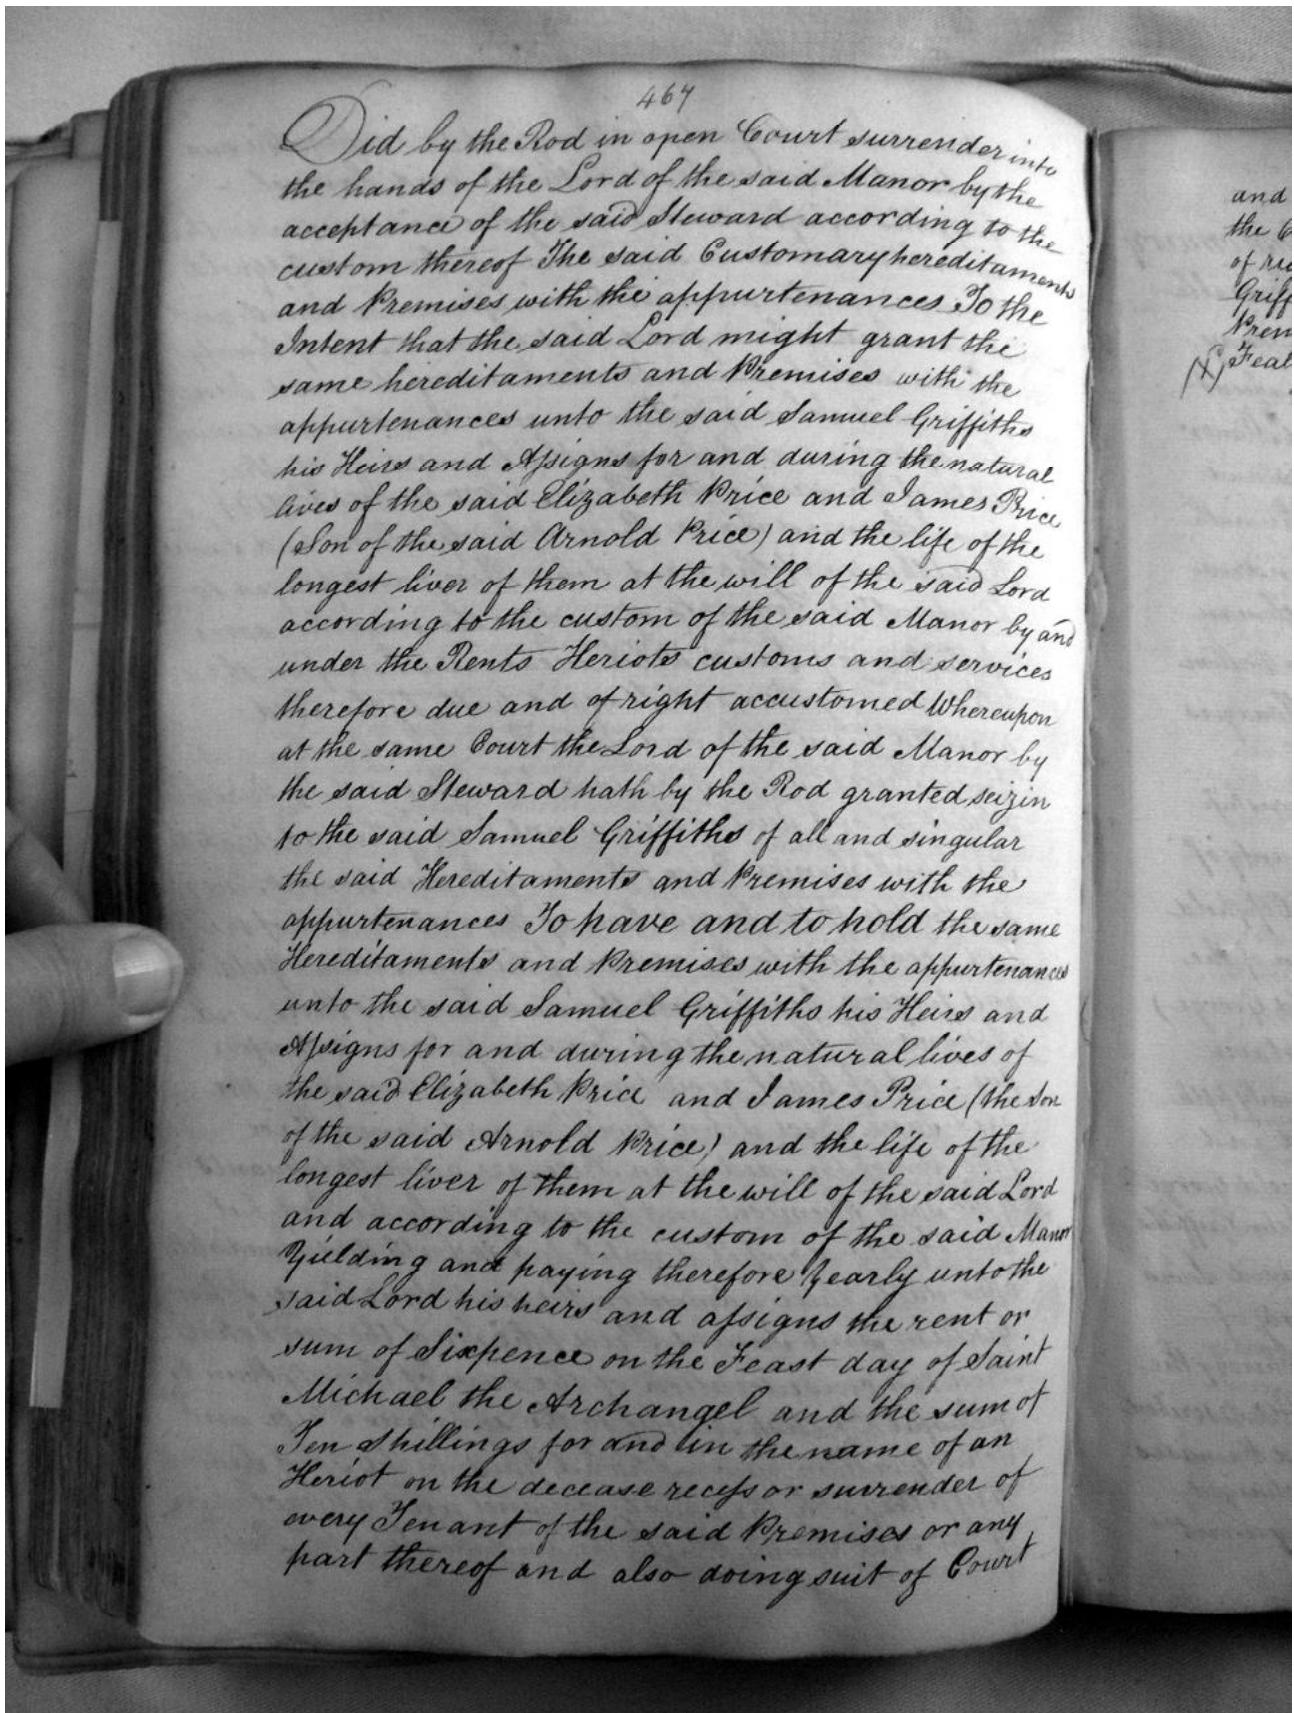 467
Did by the Rod in open Court surrender into
the hands of the Lord of the said Manor by the
acceptance of the said Steward according to the
custom thereof The said Customary hereditaments
and Premises with the appurtenances To the
Intent that the said Lord might grant the
same hereditaments and Premises with the
appurtenances unto the said Samuel Griffiths
his Heirs and Assigns for and during the natural
lives of the said Elizabeth Price and James Price
(Son of the said Arnold Price) and the life of the
longest liver of them at the will of the said Lord
according to the custom of the said Manor by and
under the Rents Heriots customs and services
therefore due and of right accustomed Whereupon
at the same Court the Lord of the said Manor by
the said Steward hath by the Rod granted seizin
to the said Samuel Griffiths of all and singular
the said Hereditaments and Premises with the
appurtenances To have and to hold the same
Hereditaments and Premises with the appurtenances
unto the said Samuel Griffiths his Heirs and
Assigns for and during the natural lives of
the said Elizabeth Price and James Price (the Son
of the said Arnold Price) and the life of the
longest liver of them at the will of the said Lord
and according to the custom of the said Manor
Yielding and paying therefore Yearly unto the
said Lord his heirs and assigns the rent or
sum of Sixpence on the Feast day of Saint
Michael the Archangel and the sum of
Ten Shillings for and in the name of an
Heriot on the decease recess or surrender of
every Tenant of the said Premises or any
part thereof and also doing suit of Court
and
the
of